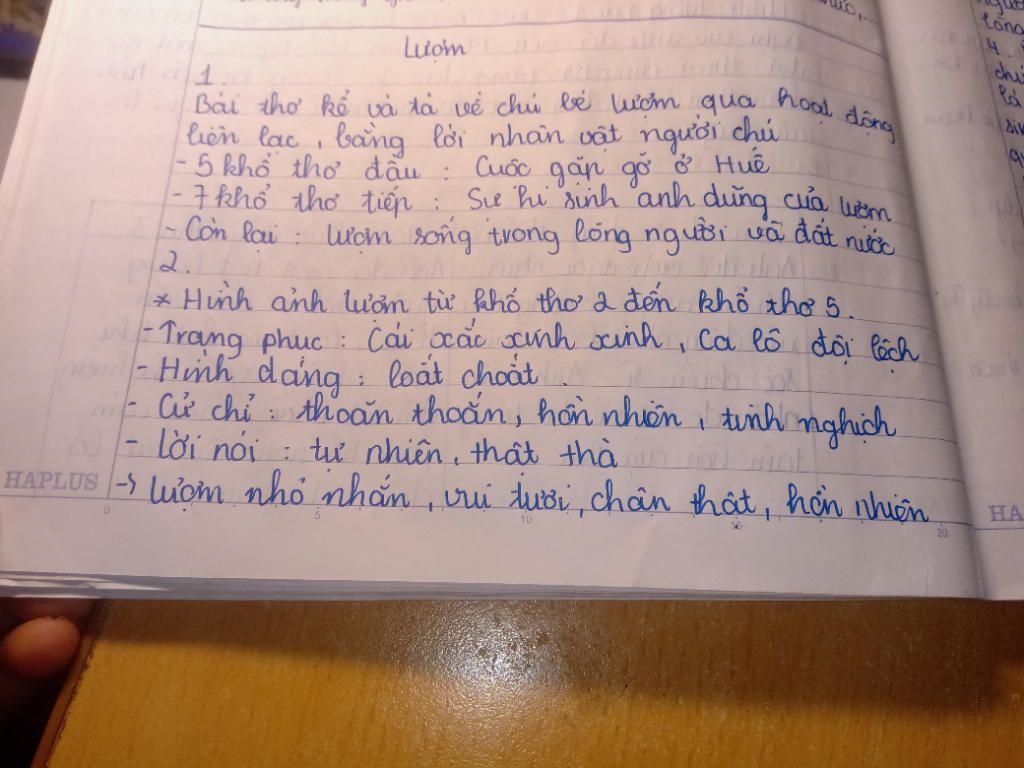 Lượm
1.
Bài thơ kể và tả về chú bé lượm qua hoạt động
liên lạc, bằng lời nhân vật người chú
- 5 khổ thơ đầu : Cuộc gặp gỡ ở Huế
- 7 khổ thơ tiếp : Sự hi sinh anh dũng của lượm
- Còn lại : lượm sống trong lòng người và đất nước
2.
* Hình ảnh lượm từ khổ thơ 2 đến khổ thơ 5.
- Trang phục : Cái xắc xinh xinh, Ca lô đội lệch
- Hình dáng : loắt choắt.
- Cử chỉ : thoăn thoắn, hồn nhiên, tinh nghịch
- lời nói : tự nhiên, thật thà
HAPLUS
-> lượm nhỏ nhắn, vui tươi, chân thật, hồn nhiên
0 5 10 15 20
HA